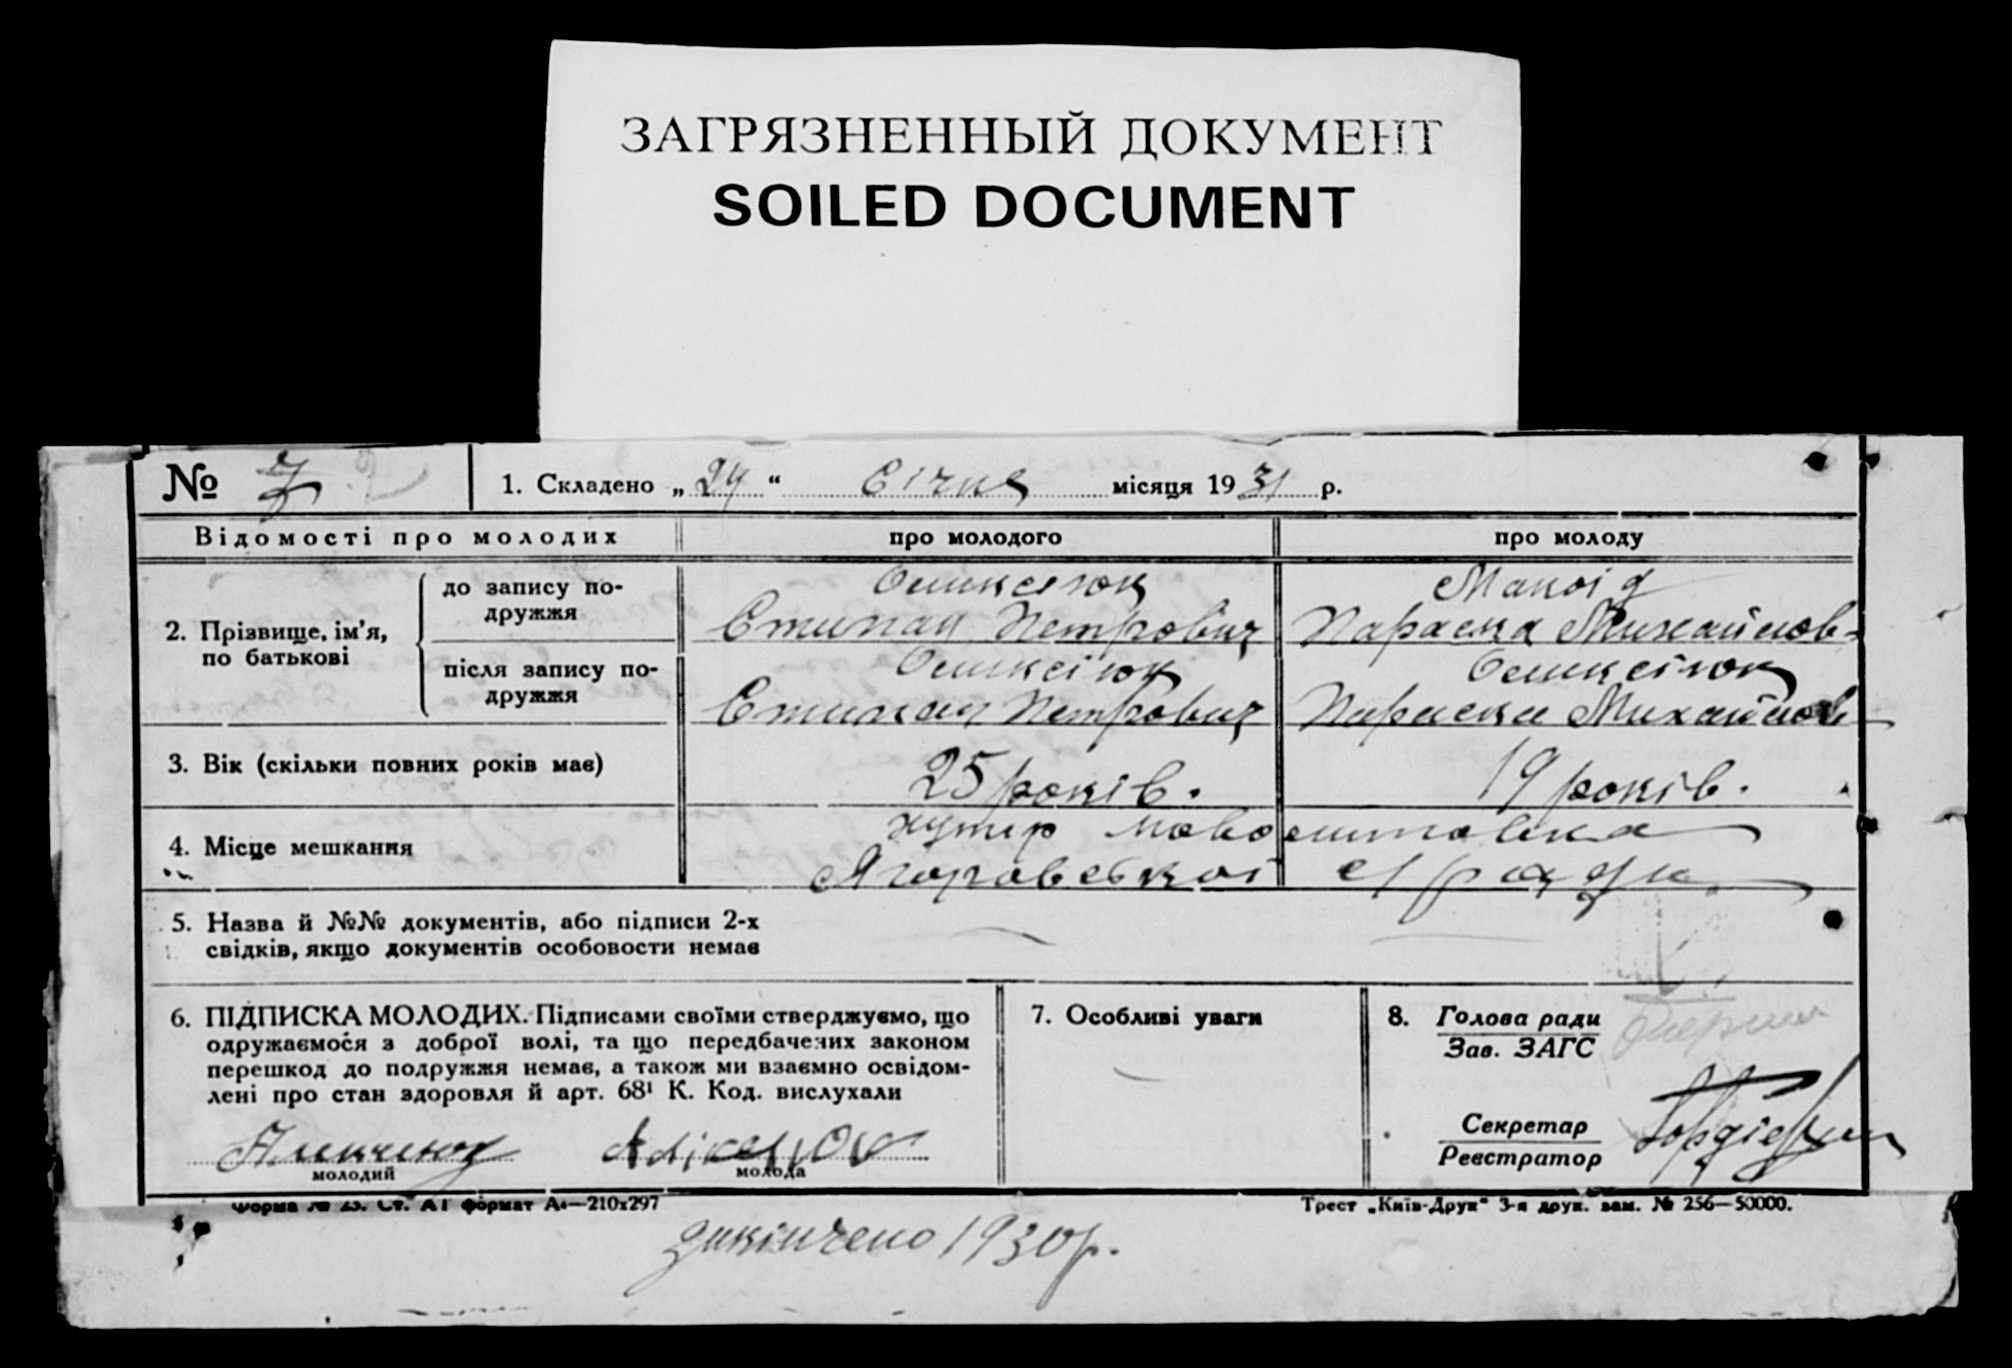 ЗАГРЯЗНЕННЫЙ ДОКУМЕНТ
SOILED DOCUMENT
№ 7
1. Складено „ 24 “ Січня місяця 19 31 р.
Відомості про молодих про молодого про молоду
2. Прізвище, ім’я, по батькові
до запису по-
дружжя
Степан Петрович Параска Михайлов-
після запису по-
дружжя
Степан Петрович Параска Михайлов
3. Вік (скільки повних років має) 25 років. 19 років.
4. Місце мешкання
хутір
с/ради
5. Назва й №№ документів, або підписи 2-х
свідків, якщо документів особовости немає
6. ПІДПИСКА МОЛОДИХ. Підписами своїми стверджуємо, що
одружаємося з доброї волі, та що передбачених законом
перешкод до подружжя немає, а також ми взаємно освідом-
лені про стан здоровля й арт. 68¹ К. Код. вислухали
молодий молода
7. Особливі уваги
8. Голова ради
Зав. ЗАГС
Секретар
Реєстратор
Форма № 23. Ст. А1 формат А4—210х297
Трест „Київ-Друк“ 3-я друк. зам. № 256—50000.
закінчено 1930р.